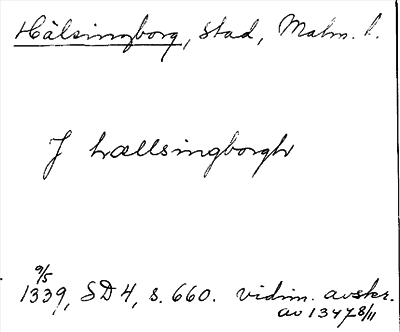 Hälsingborg, stad, Malm. l.
J hællsingborgh
9/5
1339, SD 4, s. 660. vidim. avskr.
av 1347 8/11